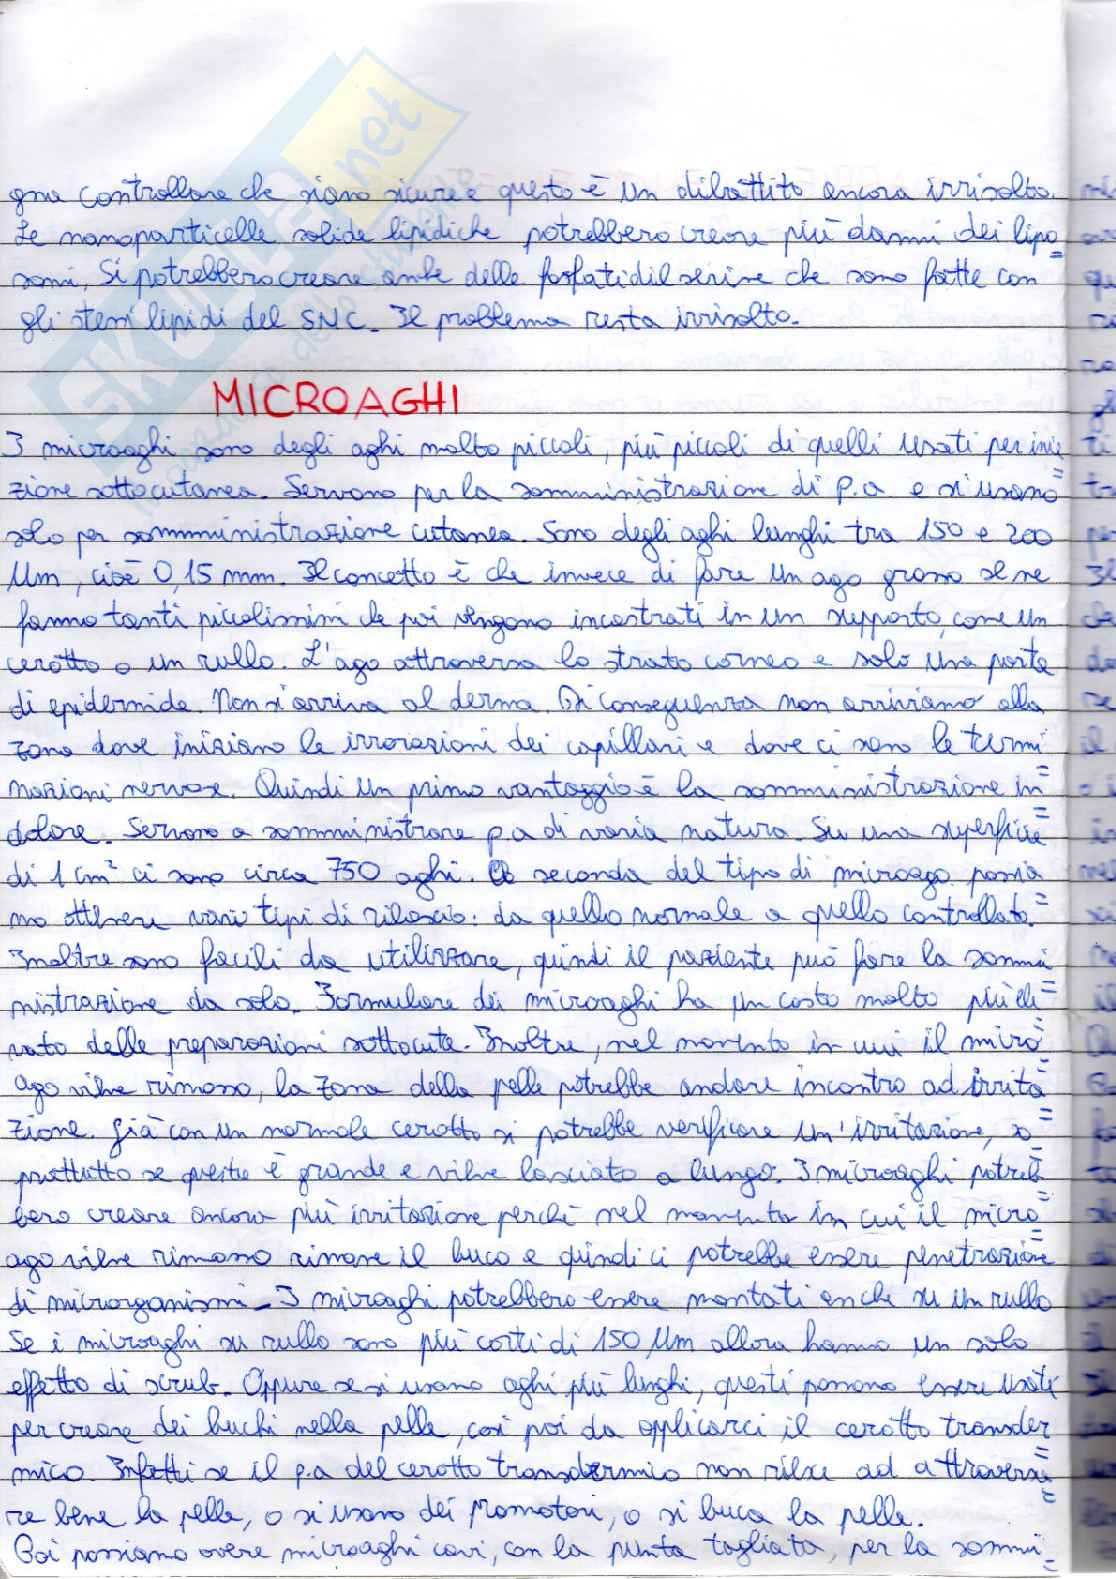 SKUOLA.net
gna controllare che siano sicure e questo è un dibattito ancora irrisolto.
Le nanoparticelle solide lipidiche potrebbero creare più danni dei lipo=
somi, Si potrebbero creare anche delle fosfatidilserine che sono fatte con
gli stessi lipidi del SNC. Il problema resta irrisolto.
MICROAGHI
I microaghi sono degli aghi molto piccoli, più piccoli di quelli usati per inie=
zione sottocutanea. Servono per la somministrazione di p.a e si usano
solo per sommministrazione cutanea. Sono degli aghi lunghi tra 150 e 200
μm, cioè 0,15 mm. Il concetto è che invece di fare un ago grosso se ne
fanno tanti piccolissimi che poi vengono incastrati in un supporto, come un
cerotto o un rullo. L'ago attraversa lo strato corneo e solo una parte
di epidermide. Non si arriva al derma. Di conseguenza non arriviamo alla
zona dove iniziano le irrorazioni dei capillari e dove ci sono le termi=
nazioni nervose. Quindi un primo vantaggio è la somministrazione in=
dolore. Servono a somministrare p.a di varia natura. Su una superficie
di 1 cm² ci sono circa 750 aghi. A seconda del tipo di microago possia=
mo ottenere vari tipi di rilascio: da quello normale a quello controllato.
Inoltre sono facili da utilizzare, quindi il paziente può fare la sommi=
nistrazione da solo. Formulare dei microaghi ha un costo molto più ele=
vato delle preparazioni sottocute. Inoltre, nel momento in cui il micro=
ago viene rimosso, la zona della pelle potrebbe andare incontro ad irrita=
zione. Già con un normale cerotto si potrebbe verificare un'irritazione, so=
prattutto se questo è grande e viene lasciato a lungo. I microaghi potreb=
bero creare ancora più irritazione perchè nel momento in cui il micro=
ago viene rimosso rimane il buco e quindi ci potrebbe essere penetrazione
di microrganismi. I microaghi potrebbero essere montati anche su un rullo
Se i microaghi su rullo sono più corti di 150 μm allora hanno un solo
effetto di scrub. Oppure se si usano aghi più lunghi, questi possono essere usati
per creare dei buchi nella pelle, così poi da applicarci il cerotto transder=
mico. Infatti se il p.a del cerotto transdermico non riesce ad attraversa=
re bene la pelle, o si usano dei promotori, o si buca la pelle.
Poi possiamo avere microaghi cavi, con la punta tagliata, per la sommi=